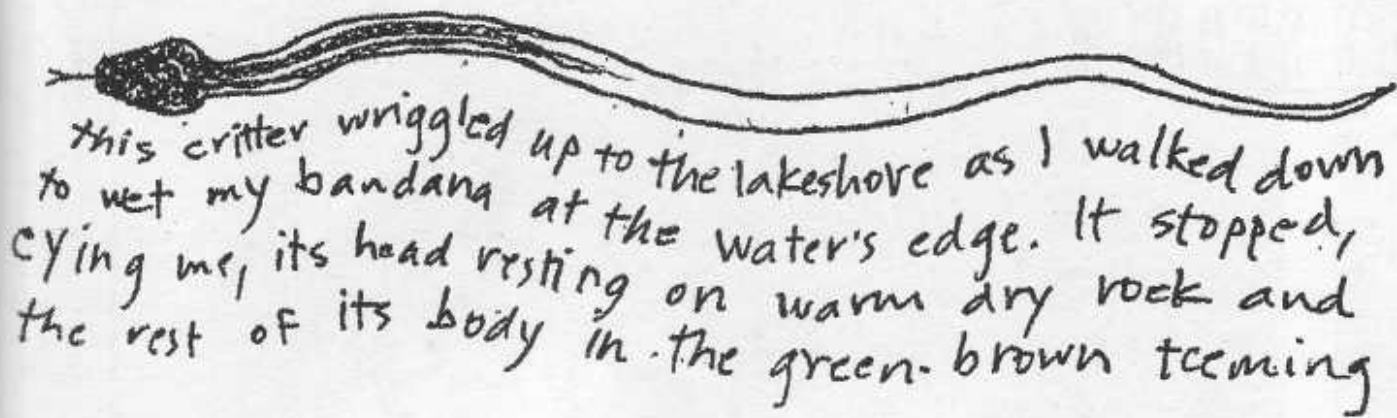 this critter wriggled up to the lakeshore as I walked down
to wet my bandana at the water's edge. It stopped,
eying me, its head resting on warm dry rock and
the rest of its body in the green-brown teeming